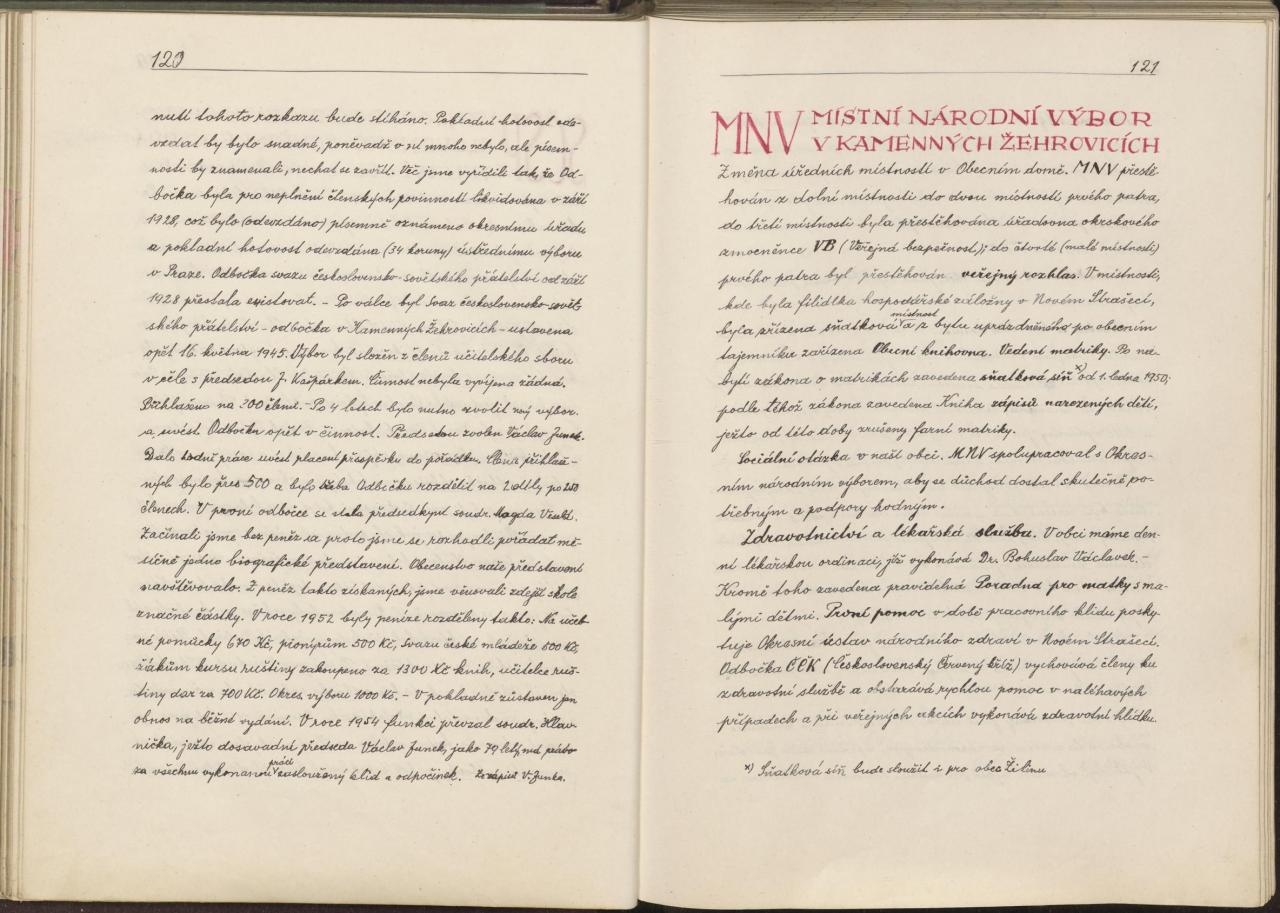 120
nutí tohoto rozkazu bude stíháno. Pokladní hotovost ode-
vzdat by bylo snadné, poněvadž v ní mnoho nebylo, ale písem-
nosti by znamenali, nechat se zavřít. Věc jsme vyřídili tak, že Od-
bočka byla pro neplnění členských povinností likvidována v září
1928, což bylo (odevzdáno) písemně oznámeno okresnímu úřadu
a pokladní hotovost odevzdána (34 koruny) ústřednímu výboru
v Praze. Odbočka svazu československo-sovětského přátelství od září
1928 přestala existovat. – Po válce byl Svaz československo-sovět-
ského přátelství – odbočka v Kamenných Žehrovicích – ustavena
opět 16. května 1945. Výbor byl složen z členů učitelského sboru
v čele s předsedou J. Kašpárkem. Činnost nebyla vyvíjena žádná.
Přihlášeno na 300 členů. – Po 4 letech bylo nutno zvolit nový výbor
a uvést Odbočku opět v činnost. Předsedou zvolen Václav Junek.
Dalo hodně práce uvést placení příspěvku do pořádku. Členů přihláše-
ných bylo přes 500 a bylo třeba Odbočku rozdělit na 2 díly po 250
členech. V první odbočce se stala předsedkyní soudr. Magda
Začínali jsme bez peněz a proto jsme se rozhodli pořádat mě-
síčně jedno biografické představení. Obecenstvo naše představení
navštěvovalo. Z peněz takto získaných, jsme věnovali zdejší škole
značné částky. V roce 1952 byly peníze rozděleny takto: Na učeb-
né pomůcky 670 Kč, pionýrům 500 Kč, Svazu české mládeže 800 Kč,
žákům kursu ruštiny zakoupeno za 1300 Kč knih, učitelce ruš-
tiny dar za 700 Kč. Okres. výboru 1000 Kč. – V pokladně zůstaven jen
obnos na běžné vydání. V roce 1954 funkci převzal soudr. Hlav-
nička, ježto dosavadní předseda Václav Junek, jako 79 letý, má právo
za všechnu vykonanou práci zasloužený klid a odpočinek. Ze zápisů V. Junka.
121
MNV MÍSTNÍ NÁRODNÍ VÝBOR
V KAMENNÝCH ŽEHROVICÍCH
Změna úředních místností v Obecním domě. MNV přestě-
hován z dolní místnosti do dvou místností prvého patra,
do třetí místnosti byla přestěhována úřadovna okrskového
zmocněnce VB (Veřejná bezpečnost); do čtvrté (malé místnosti)
prvého patra byl přestěhován veřejný rozhlas. V místnosti,
kde byla filiálka hospodářské záložny v Novém Strašecí,
byla zřízena sňatková místnost a z bytu uprázdněného po obecním
tajemníku zařízena Obecní knihovna. Vedení matriky. Po na-
bytí zákona o matrikách zavedena sňatková síň x) od 1. ledna 1950;
podle téhož zákona zavedena Kniha zápisů narozených dětí,
ježto od této doby zrušeny farní matriky.
Sociální otázka v naší obci. MNV spolupracoval s Okres-
ním národním výborem, aby se důchod dostal skutečně po-
třebným a podpory hodným.
Zdravotnictví a lékařská služba. V obci máme den-
ní lékařskou ordinaci, již vykonává Dr. Bohuslav Václavek. –
Kromě toho zavedena pravidelná Poradna pro matky s ma-
lými dětmi. První pomoc v době pracovního klidu posky-
tuje Okresní ústav národního zdraví v Novém Strašecí.
Odbočka ČČK (Československý Červený kříž) vychovává členy ku
zdravotní službě a obstarává rychlou pomoc v naléhavých
případech a při veřejných akcích vykonává zdravotní hlídku.
x) Sňatková síň bude sloužit i pro obec Žilinu